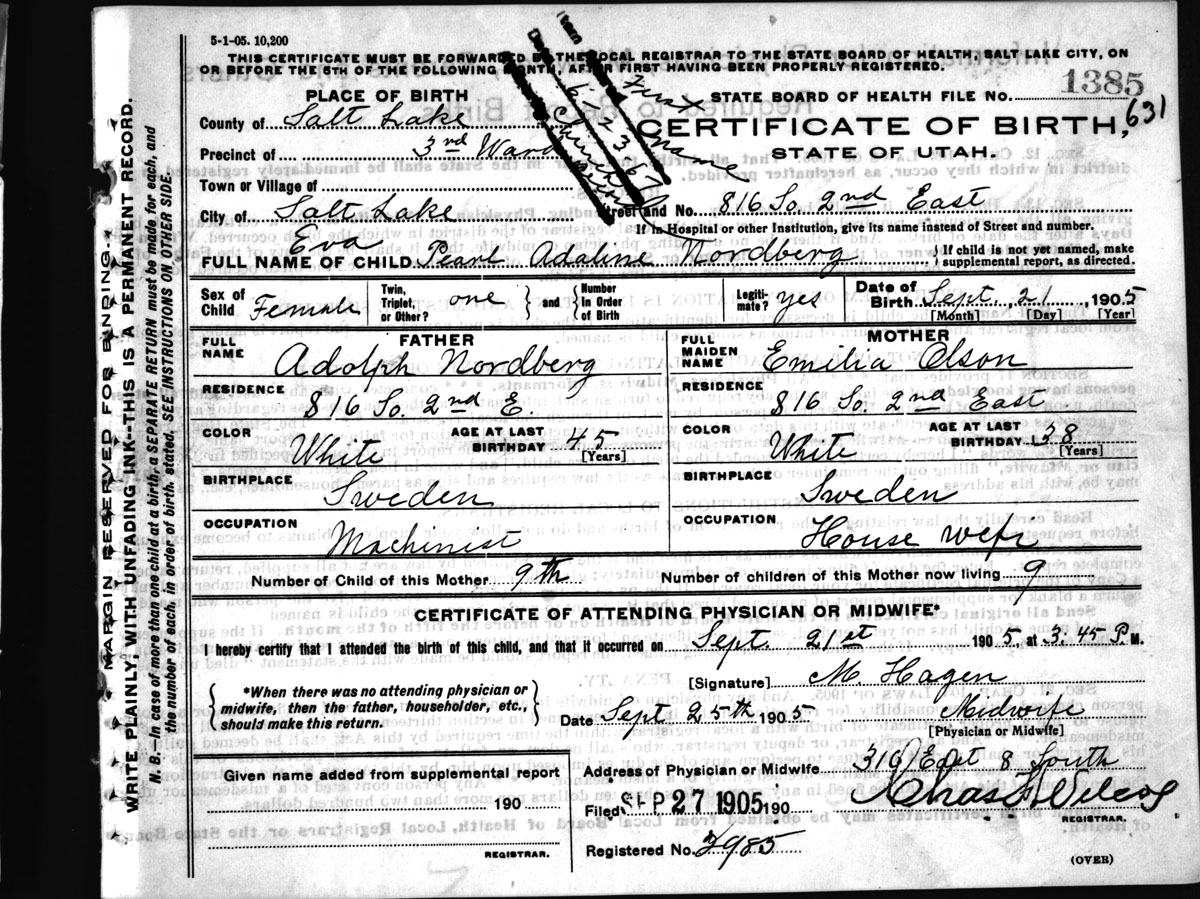 5-1-05. 10,200
THIS CERTIFICATE MUST BE FORWARDED BY THE LOCAL REGISTRAR TO THE STATE BOARD OF HEALTH, SALT LAKE CITY, ON
OR BEFORE THE 5TH OF THE FOLLOWING MONTH, AFTER FIRST HAVING BEEN PROPERLY REGISTERED.
Item
6-23-67
First
name
PLACE OF BIRTH
STATE BOARD OF HEALTH FILE NO. 1385
631
County of Salt Lake
CERTIFICATE OF BIRTH,
Precinct of 3rd Ward
STATE OF UTAH.
Town or Village of
City of Salt Lake Street and No. 816 So. 2nd East
If in Hospital or other Institution, give its name instead of Street and number.
Eva
FULL NAME OF CHILD Pearl Adaline Nordberg { If child is not yet named, make
supplemental report, as directed.
Sex of Child Female
Twin, Triplet, or Other? one } and { Number in Order of Birth
Legitimate? yes
Date of Birth Sept. 21, 1905
[Month] [Day] [Year]
FATHER
FULL NAME Adolph Nordberg
MOTHER
FULL MAIDEN NAME Emilia Olson
RESIDENCE 816 So. 2nd E.
RESIDENCE 816 So. 2nd East
COLOR White AGE AT LAST BIRTHDAY 45 [Years]
COLOR White AGE AT LAST BIRTHDAY 38 [Years]
BIRTHPLACE Sweden
BIRTHPLACE Sweden
OCCUPATION Machinist
OCCUPATION House wefe
Number of Child of this Mother 9th. Number of children of this Mother now living 9
CERTIFICATE OF ATTENDING PHYSICIAN OR MIDWIFE*
I hereby certify that I attended the birth of this child, and that it occurred on Sept. 21st 1905, at 3.45 P. M.
{ *When there was no attending physician or
midwife, then the father, householder, etc.,
should make this return. }
[Signature] M. Hagen
Date Sept 25th 1905 Midwife
[Physician or Midwife]
Given name added from supplemental report
190
REGISTRAR.
Address of Physician or Midwife 310 East 8 South
Filed SEP 27 1905 190 Chas Wilcox
REGISTRAR.
Registered No. 2985
(OVER)
MARGIN RESERVED FOR BINDING
WRITE PLAINLY, WITH UNFADING INK--THIS IS A PERMANENT RECORD.
N. B.--In case of more than one child at a birth, a SEPARATE RETURN must be made for each, and
the number of each, in order of birth, stated. SEE INSTRUCTIONS ON OTHER SIDE.